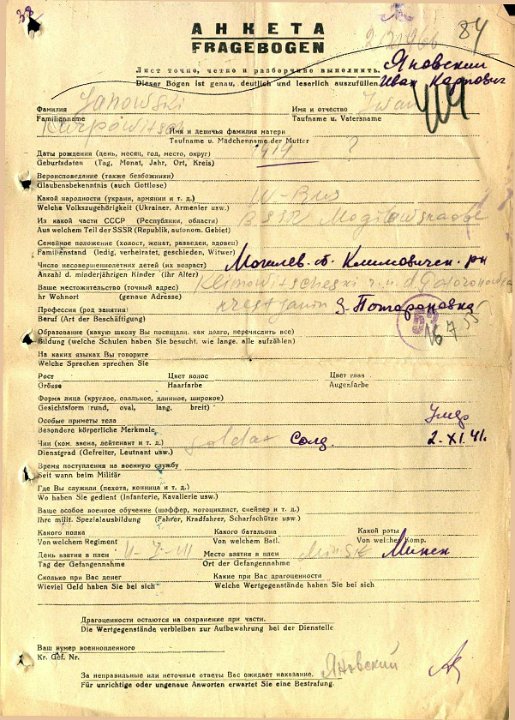 38
АНКЕТА
FRAGEBOGEN
84
Лист точно, четко и разборчиво выполнить.
Dieser Bogen ist genau, deutlich und leserlich auszufüllen.
Яновский
Иван Карпович
Фамилия Janowski Имя и отчество Iwan
Familienname Taufname u. Vatersname
Имя и девичья фамилия матери
Taufname u. Mädchenname der Mutter
Даты рождения (день, месяц, год, место, округ) 1914 ?
Geburtsdaten (Tag, Monat, Jahr, Ort, Kreis)
Вероисповедание (также безбожники)
Glaubensbekenntnis (auch Gottlose)
Какой народности (украин, армянин и т. д.) W-Rus
Welche Volkszugehörigkeit (Ukrainer, Armenier usw.)
Из какой части СССР (Республики, области) BSSR
Aus welchem Teil der SSSR (Republik, autonom. Gebiet)
Семейное положение (холост, женат, разведен, вдовец)
Familienstand (ledig, verheiratet, geschieden, Witwer)
Число несовершеннолетних детей (их возраст) Могилев. об. Климовичен. рн
Anzahl d. minderjährigen Kinder (ihr Alter)
Ваше местожительство (точный адрес)
Ihr Wohnort (genaue Adresse)
Профессия (род занятия)
Beruf (Art der Beschäftigung)
Образование (какую школу Вы посещали, как долго, перечислить все)
Bildung (welche Schulen haben Sie besucht, wie lange, alle aufzählen)
На каких языках Вы говорите
Welche Sprachen sprechen Sie
Рост Цвет волос Цвет глаз
Grösse Haarfarbe Augenfarbe
Форма лица (круглое, овальное, длинное, широкое)
Gesichtsform (rund, oval, lang, breit)
Особые приметы тела
Besondere körperliche Merkmale
Чин (ком. звена, лейтенант и т. д.) Soldat Солд 2-XI.41.
Dienstgrad (Gefreiter, Leutnant usw.)
Время поступления на военную службу
Seit wann beim Militär
Где Вы служили (пехота, конница и т. д.)
Wo haben Sie gedient (Infanterie, Kavallerie usw.)
Ваше особое военное обучение (шоффер, мотоциклист, снейпер и т. д.)
Ihre milit. Spezialausbildung (Fahrer, Kradfahrer, Scharfschütze usw.)
Какого полка Какого батальона Какой роты
Von welchem Regiment Von welchem Batl. Von welcher Komp.
День взятия в плен Место взятия в плен Minsk Минск
Tag der Gefangennahme Ort der Gefangennahme
Сколько при Вас денег Какие при Вас драгоценности
Wieviel Geld haben Sie bei sich Welche Wertgegenstände haben Sie bei sich
Драгоценности остаются на сохранение при части.
Die Wertgegenstände verbleiben zur Aufbewahrung bei der Dienstelle
Ваш нумер военнопленного
Kr. Gef. Nr.
Яновский
За неправильные или неточные ответы Вас ожидает наказание.
Für unrichtige oder ungenaue Anworten erwartet Sie eine Bestrafung.